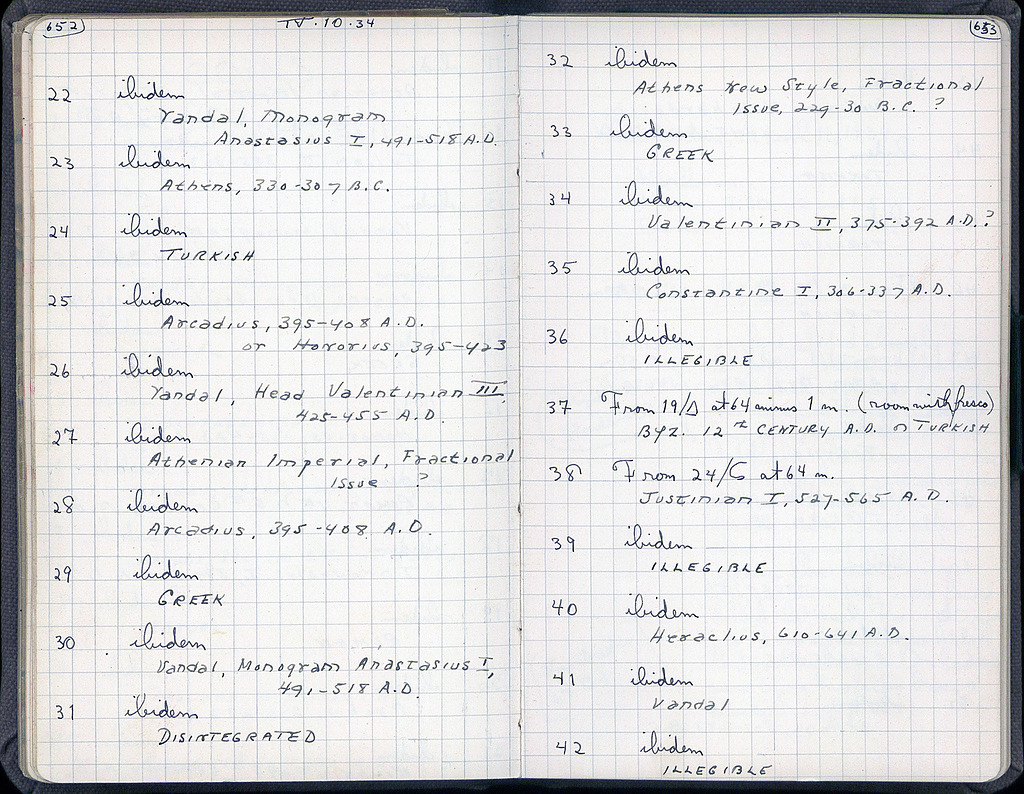 652
IV.10.34
22 ibidem
Vandal, Monogram
Anastasius I, 491-518 A.D.
23 ibidem
Athens, 330-307 B.C.
24 ibidem
TURKISH
25 ibidem
Arcadius, 395-408 A.D.
or Honorius, 395-423
26 ibidem
Vandal, Head Valentinian III,
425-455 A.D.
27 ibidem
Athenian Imperial, Fractional
Issue ?
28 ibidem
Arcadius, 395-408 A.D.
29 ibidem
GREEK
30 ibidem
Vandal, Monogram Anastasius I,
491-518 A.D.
31 ibidem
DISINTEGRATED
653
32 ibidem
Athens New Style, Fractional
Issue, 229-30 B.C. ?
33 ibidem
GREEK
34 ibidem
Valentinian II, 375-392 A.D.?
35 ibidem
Constantine I, 306-337 A.D.
36 ibidem
ILLEGIBLE
37 From 19/Δ at 64 minus 1 m. (room with fresco)
BYZ. 12th CENTURY A.D. or TURKISH
38 From 24/C at 64 m.
Justinian I, 527-565 A.D.
39 ibidem
ILLEGIBLE
40 ibidem
Heraclius, 610-641 A.D.
41 ibidem
Vandal
42 ibidem
ILLEGIBLE